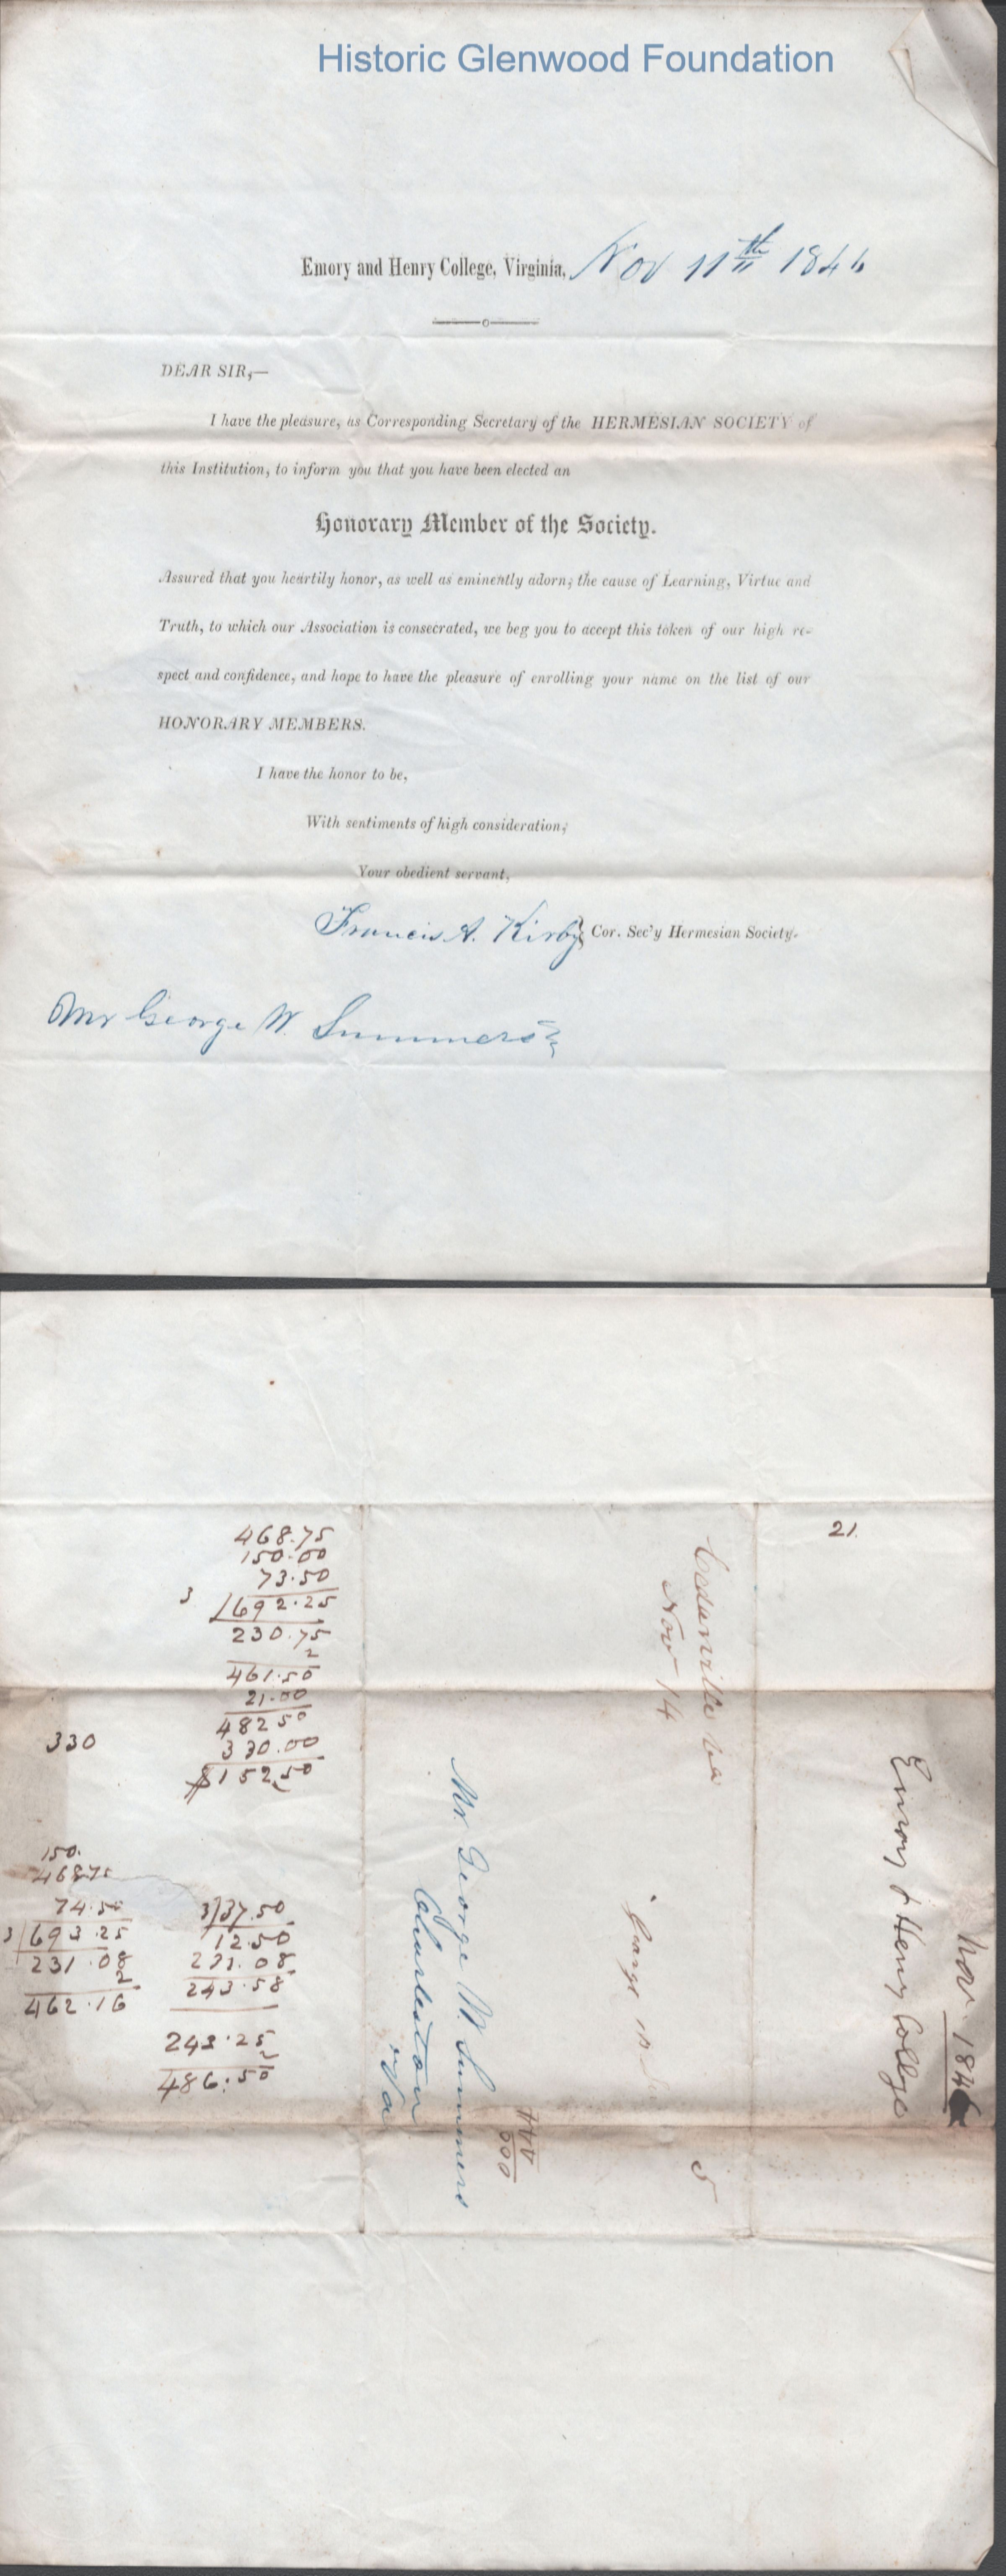 Historic Glenwood Foundation
Emory and Henry College, Virginia, Nov 11th 1846
DEAR SIR,—
I have the pleasure, as Corresponding Secretary of the HERMESIAN SOCIETY of
this Institution, to inform you that you have been elected an
Honorary Member of the Society.
Assured that you heartily honor, as well as eminently adorn, the cause of Learning, Virtue and
Truth, to which our Association is consecrated, we beg you to accept this token of our high re-
spect and confidence, and hope to have the pleasure of enrolling your name on the list of our
HONORARY MEMBERS.
I have the honor to be,
With sentiments of high consideration,
Your obedient servant,
Francis A. Kirby } Cor. Sec'y Hermesian Society.
Mr George W. Summers
21.
468.75
150.00
73.50
3 /692.25
230.75
2
461.50
21.00
482 50
330.00
$152,50
330
150.
468.75
74.50
3/693.25
231.08
2
462.16
3/37.50
12.50
231.08
243.58
243.25
2
486.50
Nov. 1846
Emory & Henry College
Nov 14
5
Mr. George W. Summers
Charleston
Va